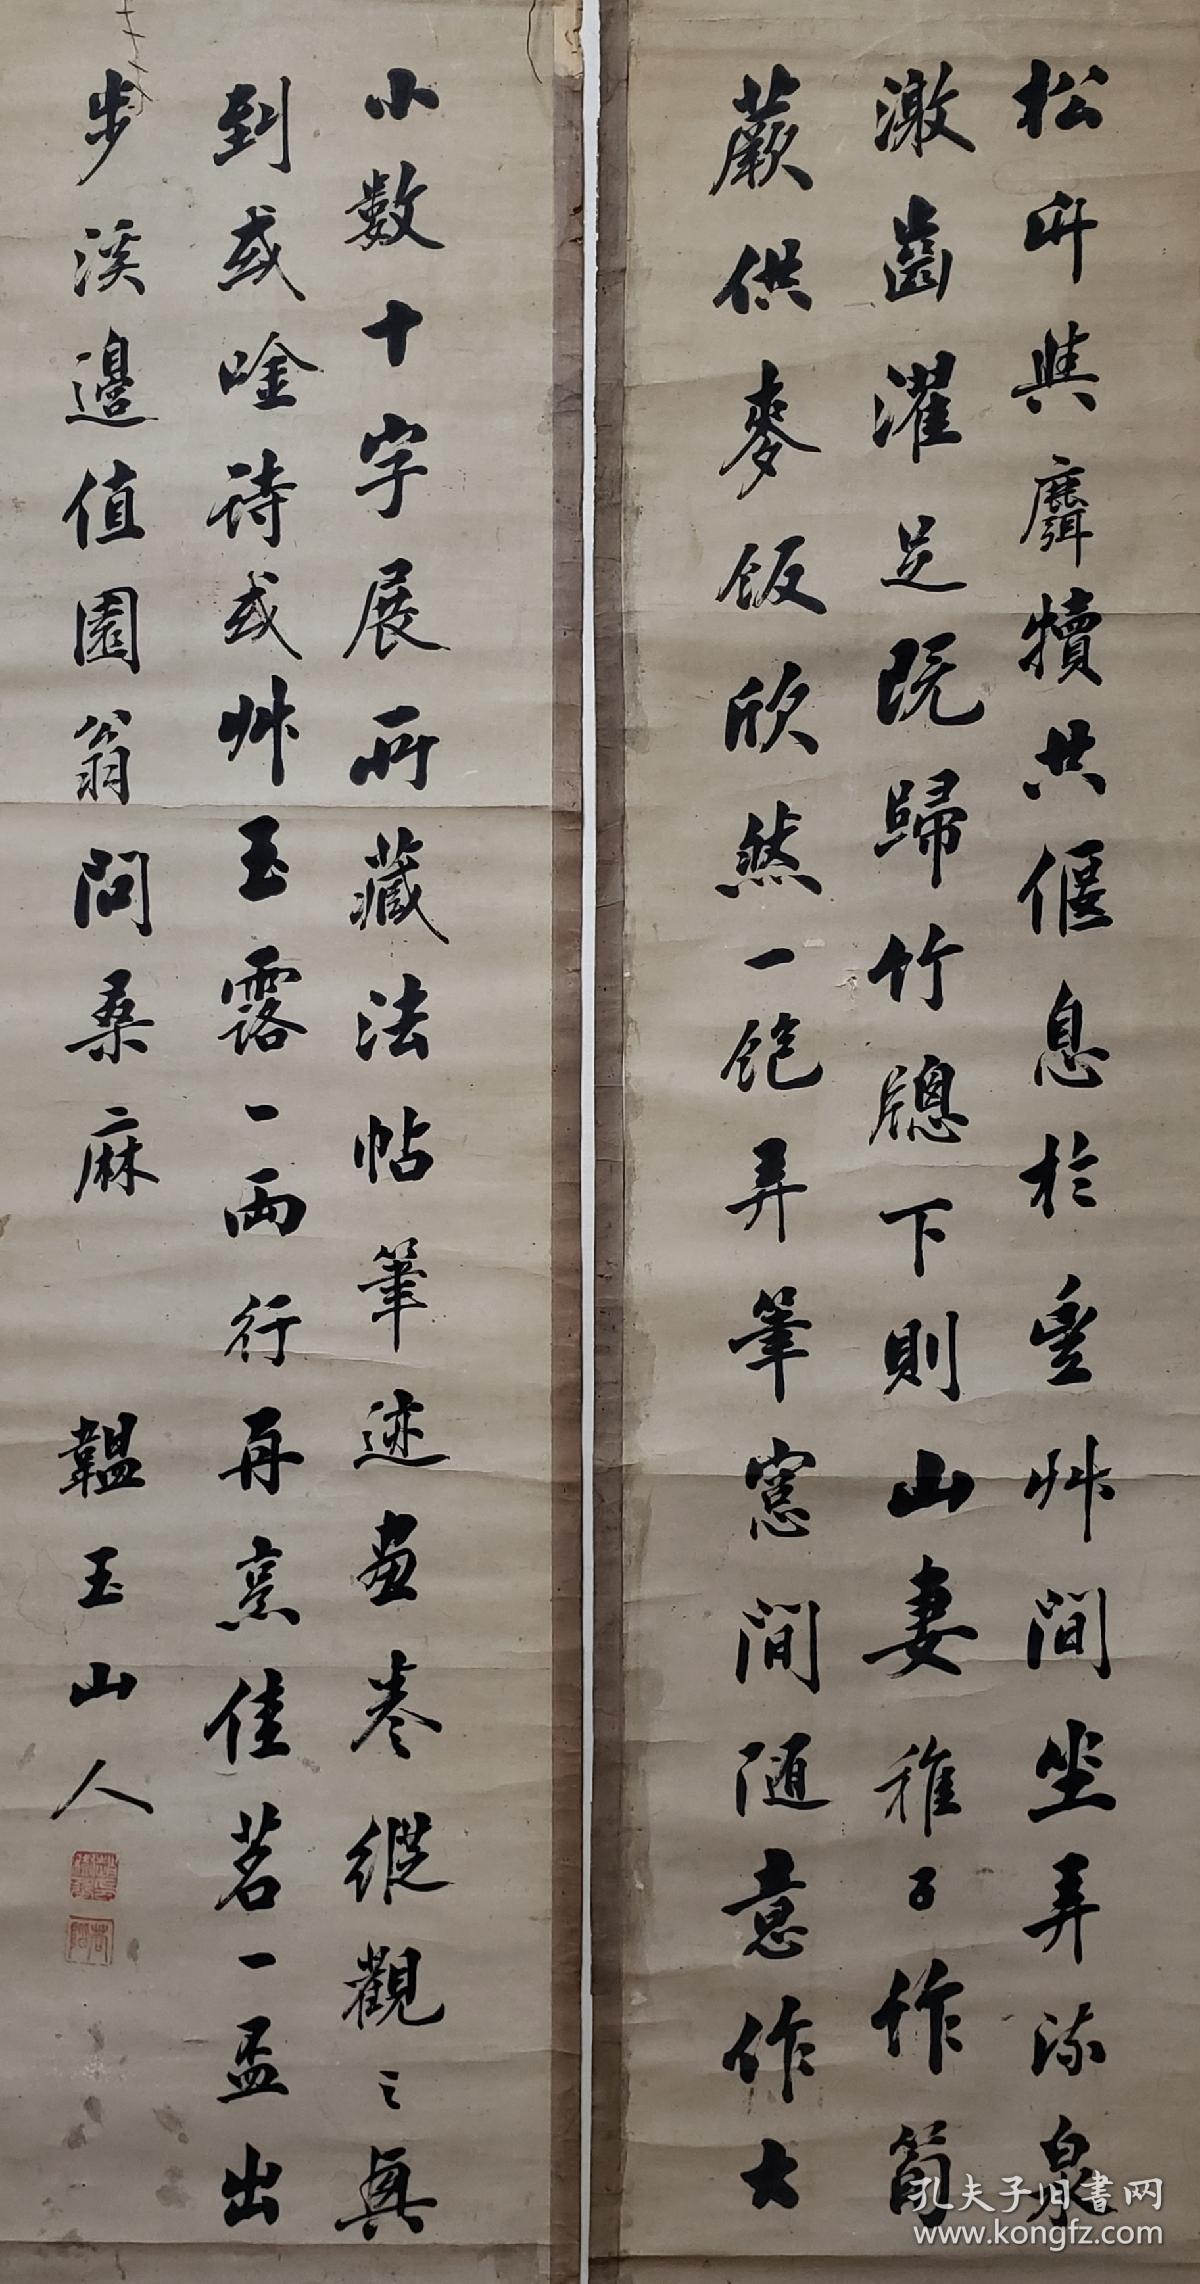 松竹與麛犢共偃息於豐艸間坐弄流泉
漱齒濯足既歸竹牕下則山妻稚子作筍
蕨供麥飯欣然一飽弄筆窓間随意作大
小數十字展所藏法帖筆迹畫卷縱觀之興
到或唫詩或艸玉露一兩行再烹佳茗一盃出
步溪邊值園翁問桑麻 韞玉山人
孔夫子旧书网
www.kongfz.com